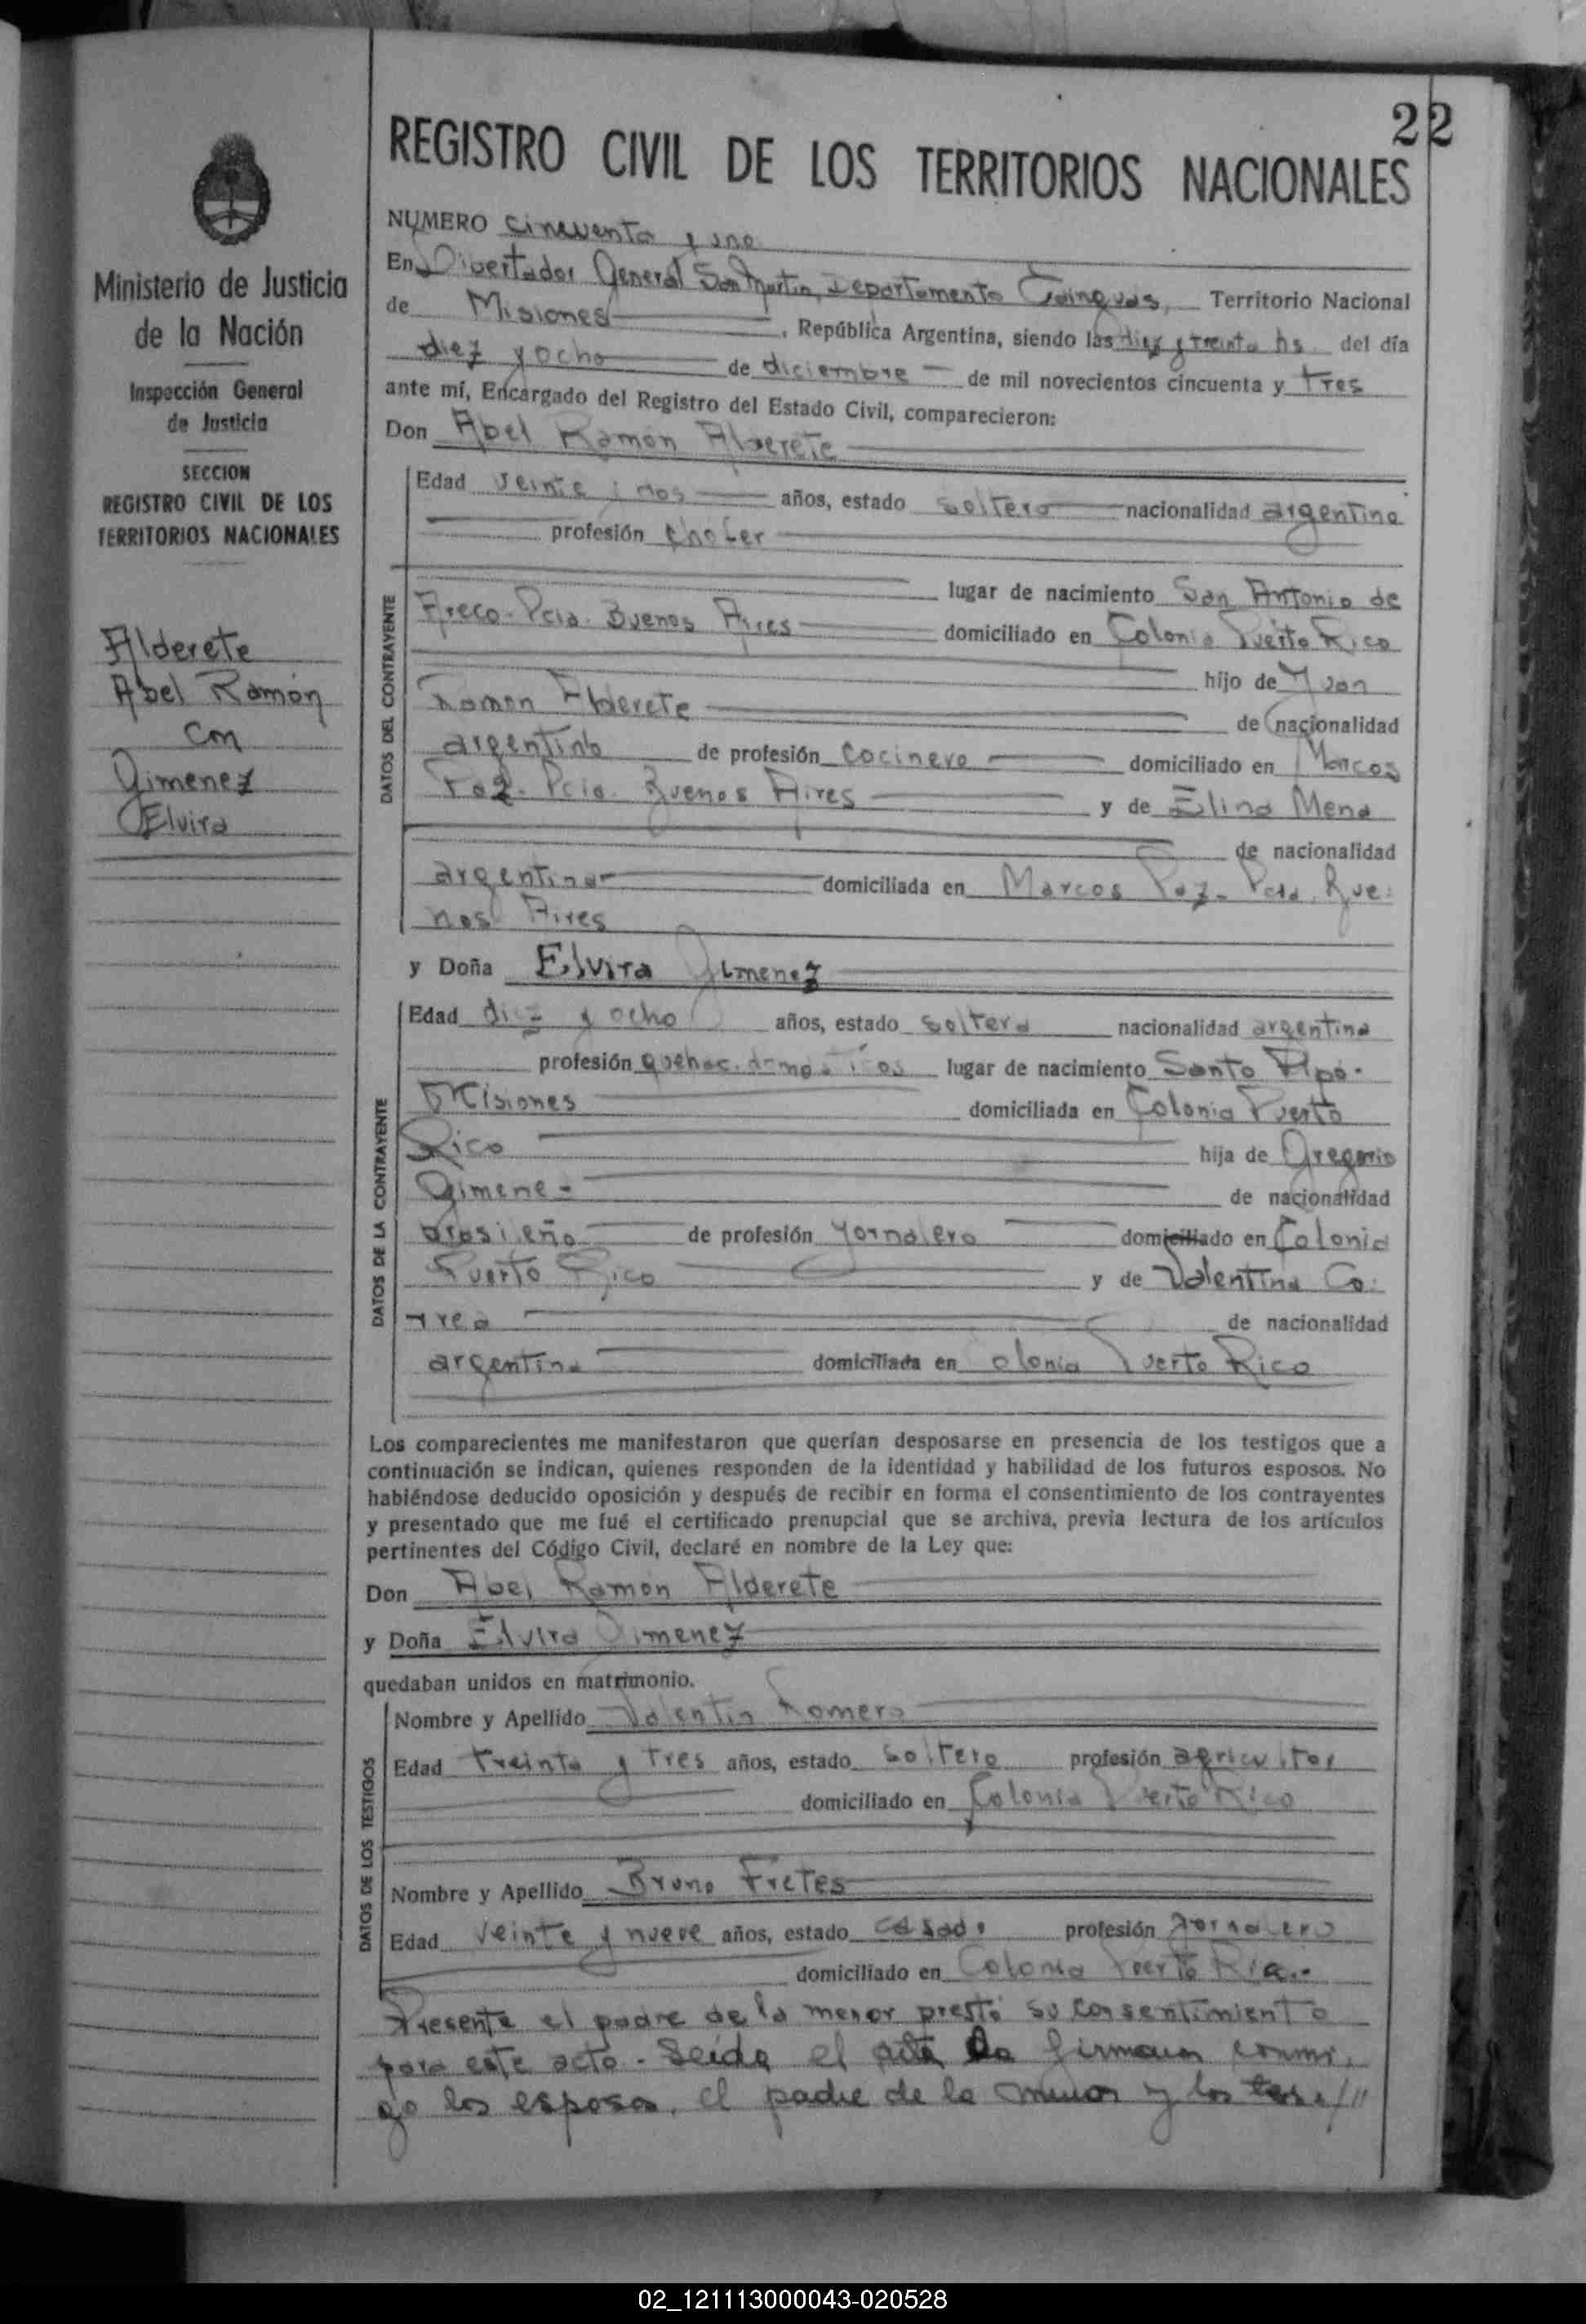 22
REGISTRO CIVIL DE LOS TERRITORIOS NACIONALES
Ministerio de Justicia
de la Nación
Inspección General
de Justicia
SECCION
REGISTRO CIVIL DE LOS
TERRITORIOS NACIONALES
Alderete
Abel Ramón
con
Gimenez
Elvira
NUMERO cincuenta y uno
En Libertador General San Martin, Departamento Cainguas, Territorio Nacional
de Misiones, República Argentina, siendo las diez y treinta hs. del día
diez y ocho de diciembre de mil novecientos cincuenta y tres
ante mí, Encargado del Registro del Estado Civil, comparecieron:
Don Abel Ramón Alderete
DATOS DEL CONTRAYENTE
Edad veinte y dos años, estado soltero nacionalidad argentina
profesión chofer
lugar de nacimiento San Antonio de
Areco - Pcia. Buenos Aires domiciliado en Colonia Puerto Rico
hijo de Juan
Ramon Alderete de nacionalidad
argentino de profesión cocinero domiciliado en Marcos
Paz - Pcia. Buenos Aires y de Elina Mena
de nacionalidad
argentina domiciliada en Marcos Paz - Pcia. Bue-
nos Aires
y Doña Elvira Gimenez
DATOS DE LA CONTRAYENTE
Edad diez y ocho años, estado soltera nacionalidad argentina
profesión quehac. domesticos lugar de nacimiento Santo Pipó -
Misiones domiciliada en Colonia Puerto
Rico hija de Gregorio
Gimenez de nacionalidad
brasileño de profesión jornalero domiciliado en Colonia
Puerto Rico y de Valentina Co-
rrea de nacionalidad
argentina domiciliada en Colonia Puerto Rico
Los comparecientes me manifestaron que querían desposarse en presencia de los testigos que a
continuación se indican, quienes responden de la identidad y habilidad de los futuros esposos. No
habiéndose deducido oposición y después de recibir en forma el consentimiento de los contrayentes
y presentado que me fué el certificado prenupcial que se archiva, previa lectura de los artículos
pertinentes del Código Civil, declaré en nombre de la Ley que:
Don Abel Ramón Alderete
y Doña Elvira Gimenez
quedaban unidos en matrimonio.
DATOS DE LOS TESTIGOS
Nombre y Apellido Valentin Romero
Edad treinta y tres años, estado soltero profesión agricultor
domiciliado en Colonia Puerto Rico
Nombre y Apellido Bruno Fretes
Edad veinte y nueve años, estado casado profesión jornalero
domiciliado en Colonia Puerto Rico.-
Presente el padre de la menor prestó su consentimiento
para este acto. Leída el acta la firmaron conmi-
go los esposos, el padre de la menor y los tes-//
02_121113000043-020528